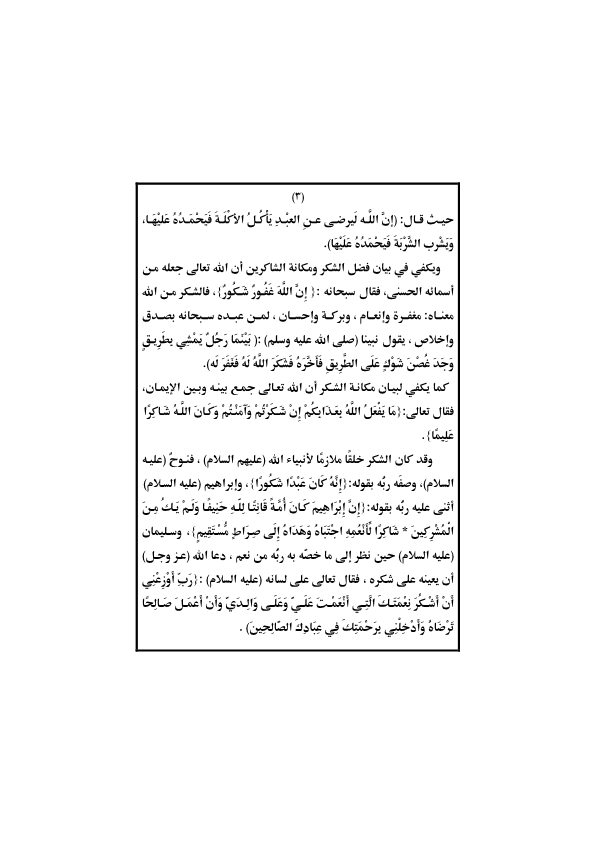 (٣)
حيث قال: (إنَّ اللَّه لَيرضى عنِ العبْدِ يَأْكُلُ الأكْلَةَ فَيَحْمَدُهُ عَليْهَا،
وَيَشْرب الشَّرْبَةَ فَيَحْمَدُهُ عَلَيْهَا).
ويكفي في بيان فضل الشكر ومكانة الشاكرين أن الله تعالى جعله من
أسمائه الحسنى، فقال سبحانه :{ إِنَّ اللَّهَ غَفُورٌ شَكُورٌ}، فالشكر من الله
معناه: مغفرة وإنعام ، وبركة وإحسان ، لمن عبده سبحانه بصدق
وإخلاص ، يقول نبينا (صلى الله عليه وسلم) :( بَيْنَمَا رَجُلٌ يَمْشِي بِطَرِيقٍ
وَجَدَ غُصْنَ شَوْكٍ عَلَى الطَّرِيقِ فَأَخَّرَهُ فَشَكَرَ اللَّهُ لَهُ فَغَفَرَ لَه).
كما يكفي لبيان مكانة الشكر أن الله تعالى جمع بينه وبين الإيمان،
فقال تعالى:{مَا يَفْعَلُ اللَّهُ بِعَذَابِكُمْ إِنْ شَكَرْتُمْ وَآمَنْتُمْ وَكَانَ اللَّهُ شَاكِرًا
عَلِيمًا}.
وقد كان الشكر خلقًا ملازمًا لأنبياء الله (عليهم السلام) ، فنوحٌ (عليه
السلام)، وصفَه ربُّه بقوله:{إِنَّهُ كَانَ عَبْدًا شَكُورًا}، وإبراهيم (عليه السلام)
أثنى عليه ربُّه بقوله:{إِنَّ إِبْرَاهِيمَ كَانَ أُمَّةً قَانِتًا لِلَّهِ حَنِيفًا وَلَمْ يَكُ مِنَ
الْمُشْرِكِينَ * شَاكِرًا لِّأَنْعُمِهِ اجْتَبَاهُ وَهَدَاهُ إِلَى صِرَاطٍ مُّسْتَقِيمٍ}، وسليمان
(عليه السلام) حين نظر إلى ما خصّه به ربُّه من نعم ، دعا الله (عز وجل)
أن يعينه على شكره ، فقال تعالى على لسانه (عليه السلام) :{رَبِّ أَوْزِعْنِي
أَنْ أَشْكُرَ نِعْمَتَكَ الَّتِي أَنْعَمْتَ عَلَيَّ وَعَلَى وَالِدَيَّ وَأَنْ أَعْمَلَ صَالِحًا
تَرْضَاهُ وَأَدْخِلْنِي بِرَحْمَتِكَ فِي عِبَادِكَ الصَّالِحِينَ) .